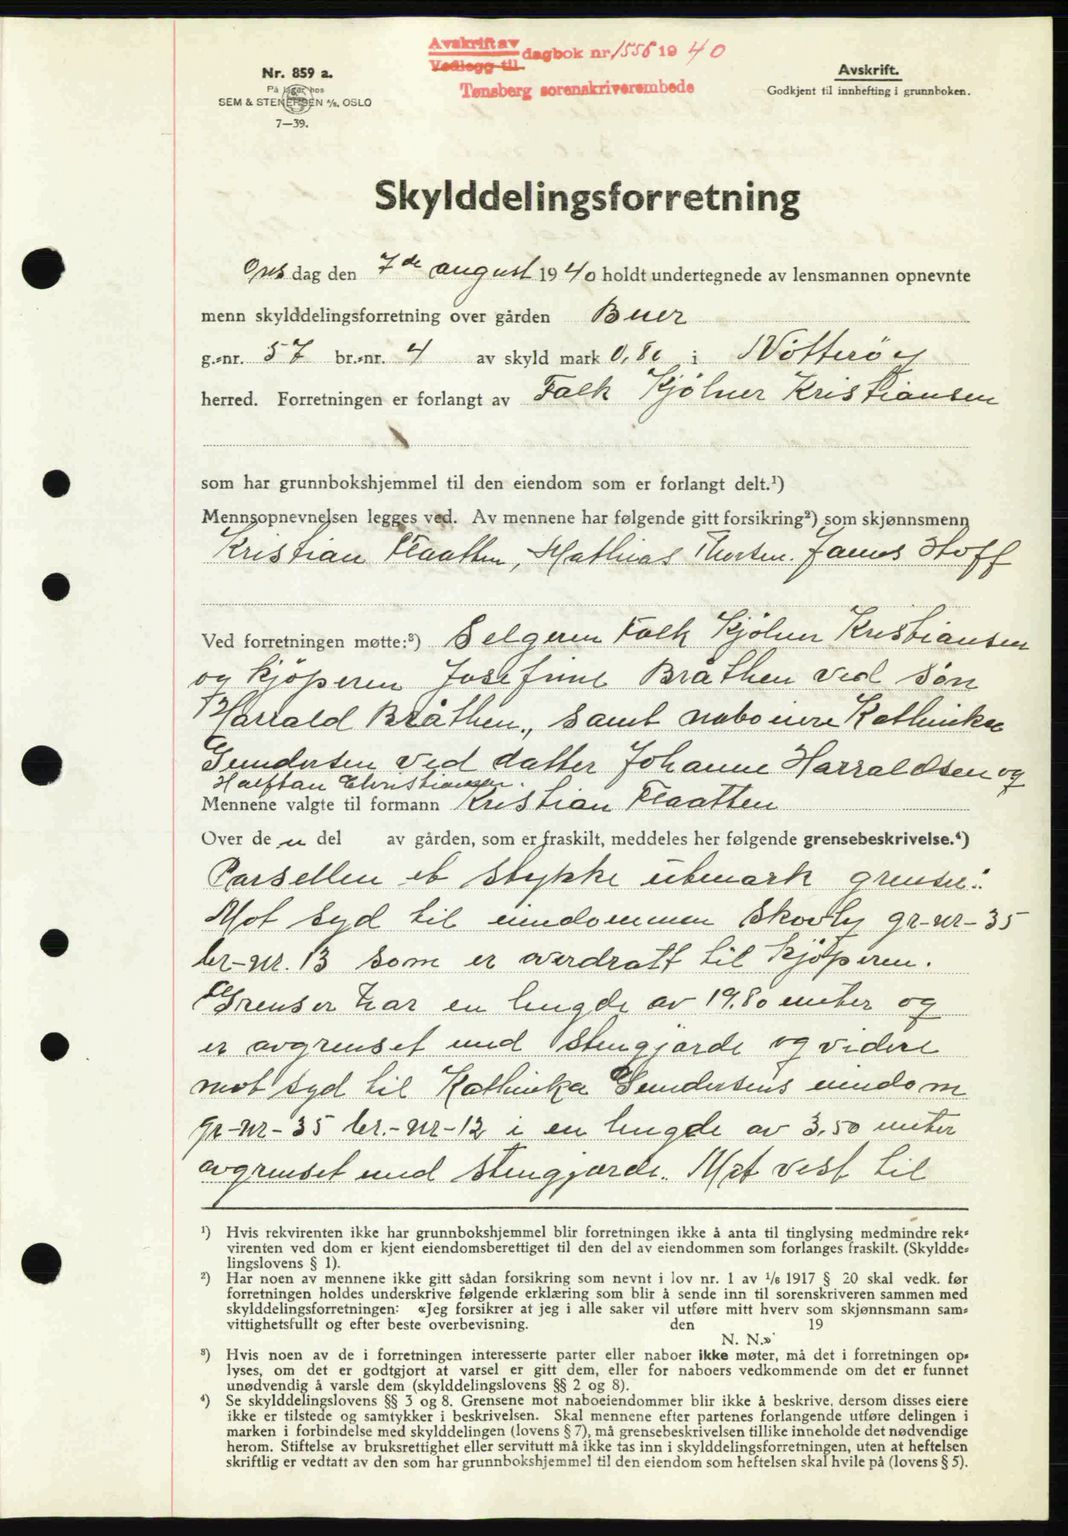 Avskrift av
Vedlegg til dagbok nr. 1558 1940
Tønsberg sorenskriverembede
Nr. 859 a.
På lager hos
SEM & STENERSEN A/S, OSLO
7—39.
Avskrift.
Godkjent til innhefting i grunnboken.
Skylddelingsforretning
Onsdag den 7de august 1940 holdt undertegnede av lensmannen opnevnte
menn skylddelingsforretning over gården Buer
g.-nr. 57 br.-nr. 4 av skyld mark 0,80 i Nøtterøy
herred. Forretningen er forlangt av Falk Kjølner Kristiansen
som har grunnbokshjemmel til den eiendom som er forlangt delt.¹)
Mennsopnevnelsen legges ved. Av mennene har følgende gitt forsikring²) som skjønnsmenn
Kristian Flaatten, Mathias Thorsen. James Hoff
Ved forretningen møtte:³) Selgeren Falk Kjølner Kristiansen
og kjøperen Josefine Bråthen ved søn
Harrald Bråthen., samt naboeiere Kathinka
Gundersen ved datter Johanne Harraldsen og
Halftan Christiansen.
Mennene valgte til formann Kristian Flaatten
Over de n del av gården, som er fraskilt, meddeles her følgende grensebeskrivelse.⁴)
Parsellen et stykke utmark grenser:
Mot syd til eiendommen Skovly gr-nr-35
br-nr. 13 som er overdratt til kjøperen.
Grensen har en lengde av 19.80 meter og
er avgrenset med stengjærde og videre
mot syd til Kathinka Gundersens eiendom
gr-nr-35 br.-nr-12 i en lengde av 3,50 meter
avgrenset med stengjærde. Mot vest til
¹) Hvis rekvirenten ikke har grunnbokshjemmel blir forretningen ikke å anta til tinglysing medmindre rek-
virenten ved dom er kjent eiendomsberettiget til den del av eiendommen som forlanges fraskilt. (Skyldde-
lingslovens § 1).
²) Har noen av mennene ikke gitt sådan forsikring som nevnt i lov nr. 1 av 1/6 1917 § 20 skal vedk. før
forretningen holdes underskrive følgende erklæring som blir å sende inn til sorenskriveren sammen med
skylddelingsforretningen: «Jeg forsikrer at jeg i alle saker vil utføre mitt hverv som skjønnsmann sam-
vittighetsfullt og efter beste overbevisning. den 19
N. N.»
³) Hvis noen av de i forretningen interesserte parter eller naboer ikke møter, må det i forretningen op-
lyses, om det er godtgjort at varsel er gitt dem, eller for naboers vedkommende om det er funnet
unødvendig å varsle dem (skylddelingslovens §§ 2 og 8).
⁴) Se skylddelingslovens §§ 3 og 8. Grensene mot naboeiendommer blir ikke å beskrive, dersom disses eiere
ikke er tilstede og samtykker i beskrivelsen. Skal mennene efter partenes forlangende utføre delingen i
marken i forbindelse med skylddelingen (lovens § 7), må grensebeskrivelsen tillike inneholde det nødvendige
herom. Stiftelse av bruksrettighet eller servitutt må ikke tas inn i skylddelingsforretningen, uten at heftelsen
skriftlig er vedtatt av den som har grunnbokshjemmel til den eiendom som heftelsen skal hvile på (lovens § 5).